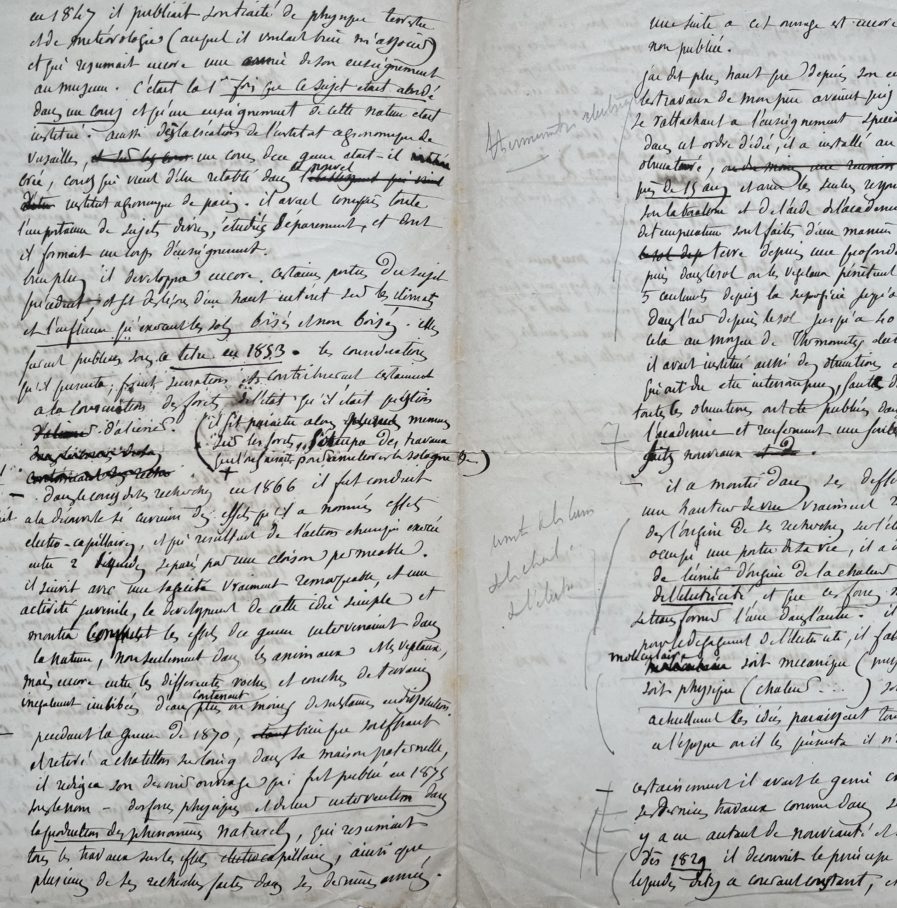 en 1847 il publiait son traité de physique terrestre
et de météorologie (auquel il voulait bien m'associer)
et qui resumait encore une année de son enseignement
au museum. c'était la 1re fois que ce sujet était abordé
dans un cours et qu'un enseignement de cette nature était
institué. aussi des la création de l'institut agronomique de
Versailles, un cours de ce genre était-il
créé, cours qui vient d'être retabli dans le nouvel
institut agronomique de paris. il avait compris toute
l'importance de sujets divers, étudiés séparement, et dont
il formait un corps d'enseignement.
bien plus il developpa encore certaines parties du sujet
et fit des leçons d'un haut interet sur les climats
et l'influence qu'exercent les sols boisés et non boisés. elles
furent publiées sous ce titre en 1853. les considerations
qu'il presenta, firent sensation et contribuerent certainement
a la conservation des forets de l'état qu'il était question
d'aliener. (il fit paraitre alors plusieurs memoires
sur les forets, s'occupa des travaux
pour ameliorer la sologne &c)
dans le cours de ses recherches en 1866 il fut conduit
a la découverte si curieuse des effets qu'il a nommés effets
electro-capillaires, et qui resultent de l'action chimique exercée
entre 2 liquides separés par une cloison permeable.
il suivit avec une sagacité vraiment remarquable, et une
activité juvenile, le developpement de cette idée simple et
montra les effets de ce genre intervenant dans
la nature, non seulement dans les animaux et les végétaux,
mais encore entre les differentes roches et couches de terrains
inegalement imbibées d'eau contenant plus ou moins de substances en dissolution.
pendant la guerre de 1870, bien que souffrant
et retiré a chatillon sur loing dans sa maison paternelle,
il redigea son dernier ouvrage qui fut publié en 1875
sous le nom - des forces physiques et de leur intervention dans
la production des phenomènes naturels, qui resumait
tous les travaux sur les effets electrocapillaires, ainsi que
plusieurs de ses recherches faites dans ses dernieres années.
une suite a cet ouvrage est encore
non publiée.
j'ai dit plus haut que depuis son
les travaux de mon père avaient
se rattachant a l'enseignement
dans cet ordre d'idée, il a installé au
thermometre electrique
près de 15 ans et avec les seules
son laboratoire et de l'aide de l'academie
de temperature sont faites d'une maniere
terre depuis une profondeur
puis dans le sol ou les vegetaux penetrent
5 centimets depuis la superficie jusqu'a
dans l'air depuis le sol jusqu'a
cela au moyen de Thermometres
il avait institué aussi des observations
qui ont du etre interrompues, faute
toutes les observations ont eté publiées dans
l'academie et renferment une foule
faits nouveaux
il a montré dans ses
une hauteur de vue vraiment
des l'origine de ses recherches sur
occupé une partie de sa vie, il a
de l'unité d'origine de la chaleur
de l'electricité et que ces forces
se transforment l'une dans l'autre.
unité
de chaleur
de l'electr
pour le degagement de l'electricité, il
moleculaire soit mecanique
soit physique (chaleur ...)
actuellement les idées paraissent
a l'époque ou il les presenta il
certainement il avait le genie
ses derniers travaux comme dans
y a eu autant de nouveauté et
dès 1829 il decouvrit le principe
liquides dites a courant constant,